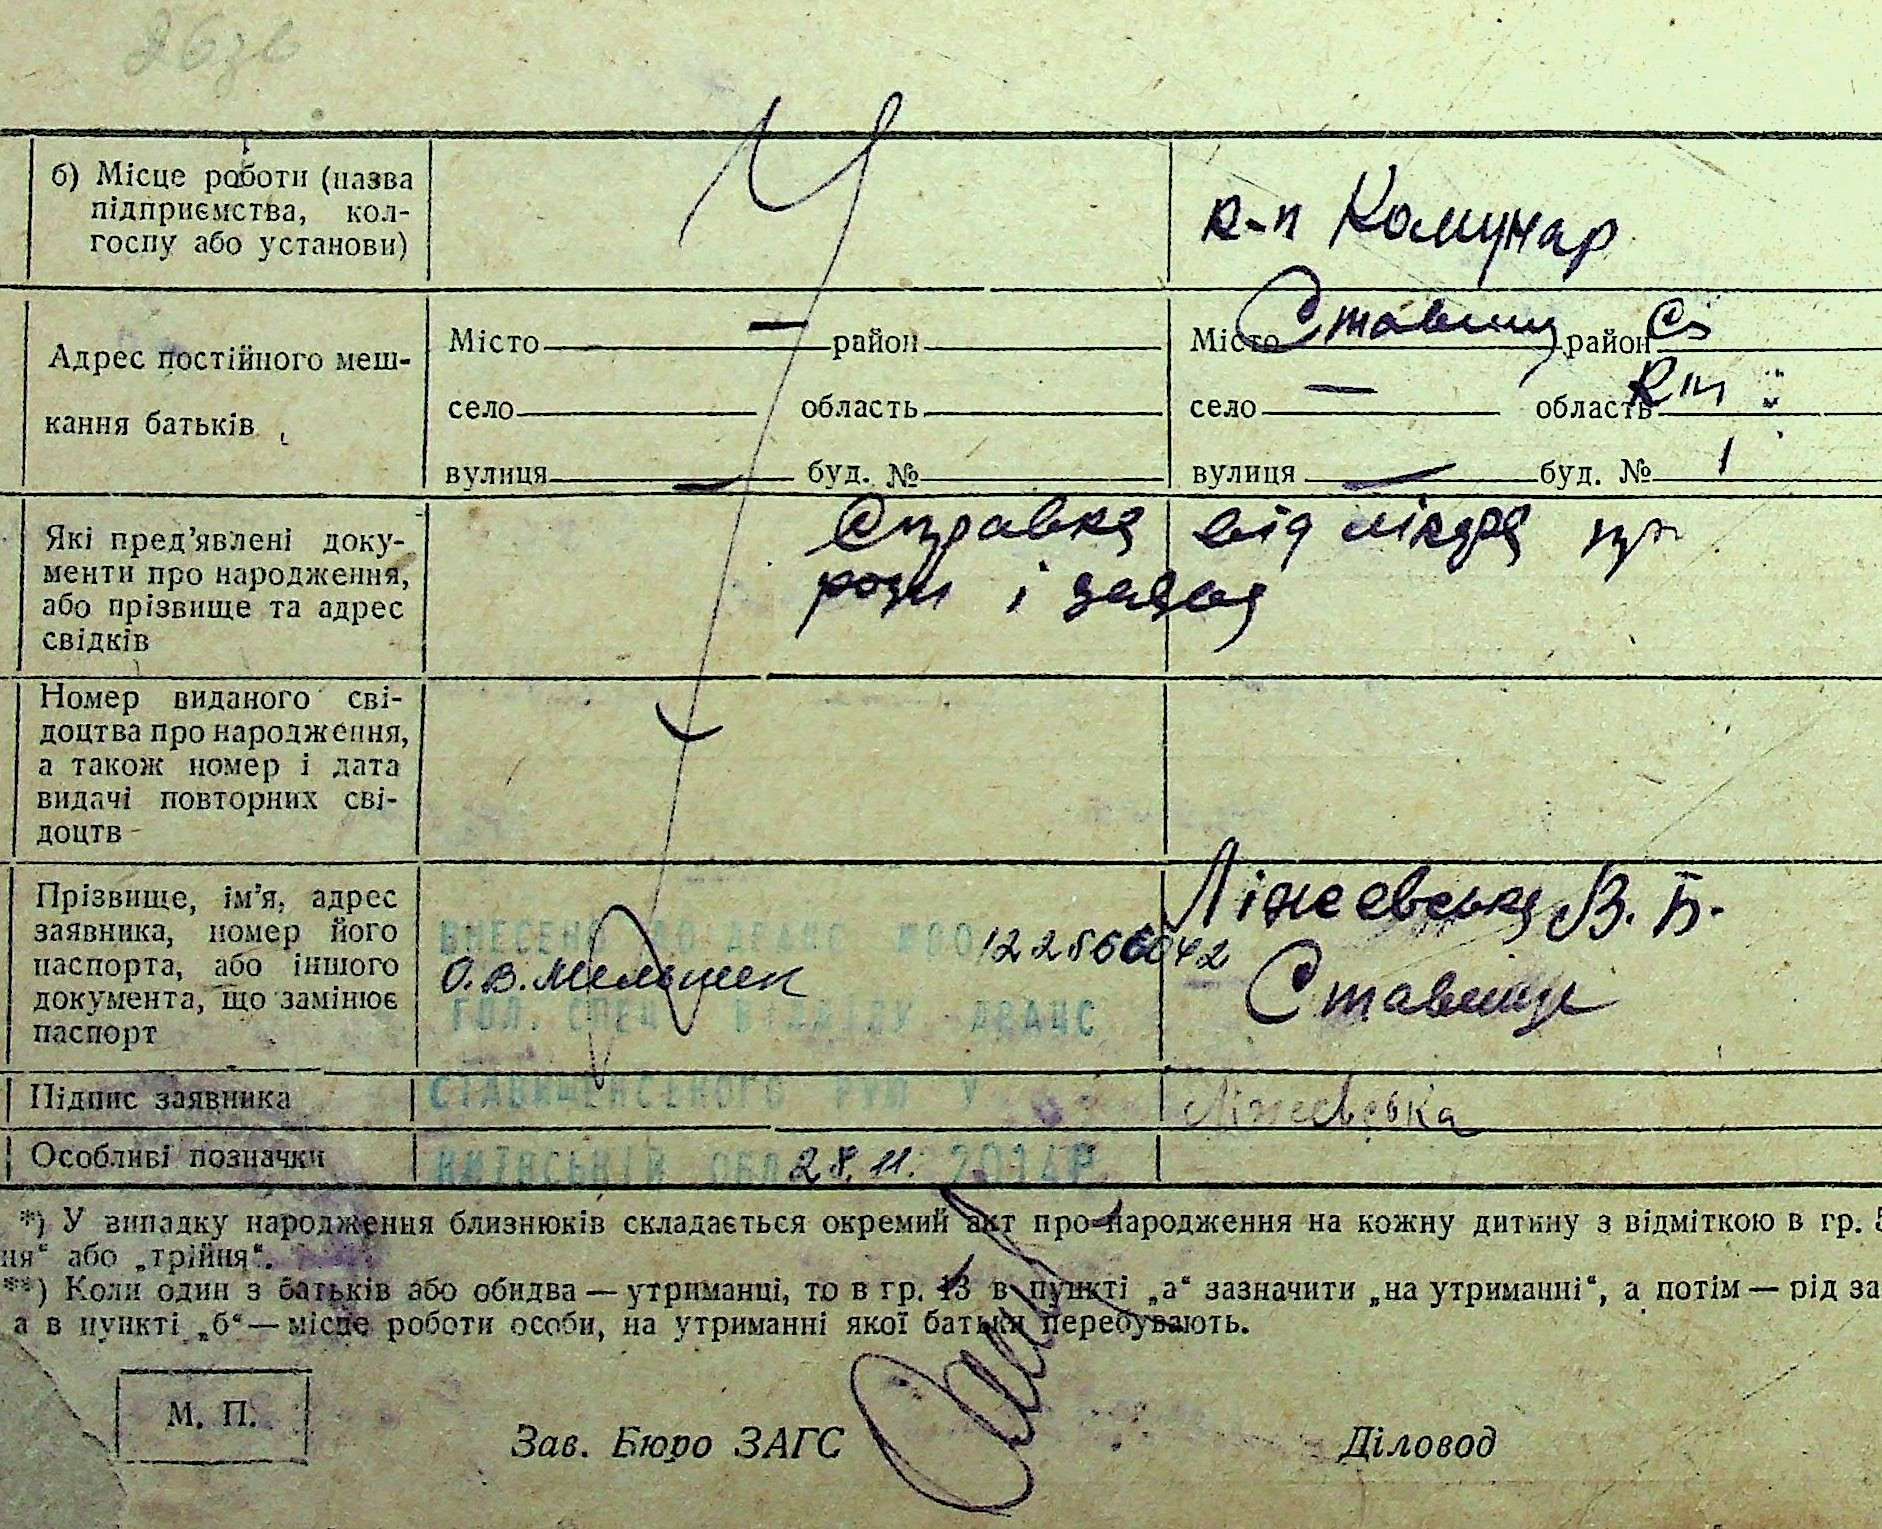 б) Місце роботи (назва
підприємства, кол-
госпу або установи)
к-п Комунар
Адрес постійного меш-
кання батьків
Місто — район
село область
вулиця — буд. №
Місто Ставищ район
село — область
вулиця — буд. № 1
Які пред'явлені доку-
менти про народження,
або прізвище та адрес
свідків
Справка від лікаря
і
Номер виданого сві-
доцтва про народження,
а також номер і дата
видачі повторних сві-
доцтв
Прізвище, ім'я, адрес
заявника, номер його
паспорта, або іншого
документа, що замінює
паспорт
ВНЕСЕНО ДО ДРАЦС
О.В.Мельник
ГОЛ. СПЕЦ ВІДДІЛУ ДРАЦС
СТАВИЩЕНСЬКОГО РУЮ У
КИЇВСЬКІЙ ОБЛ 28.11. 2014Р
Ліжеєвська В. Б.
Ставище
Підпис заявника
Ліжеєвська
Особливі позначки
*) У випадку народження близнюків складається окремий акт про народження на кожну дитину з відміткою в гр. 5
ня“ або „трійня“.
**) Коли один з батьків або обидва — утриманці, то в гр. 13 в пункті „а“ зазначити „на утриманні“, а потім — рід за
а в пункті „б“ — місце роботи особи, на утриманні якої батьки перебувають.
М. П.
Зав. Бюро ЗАГС
Діловод